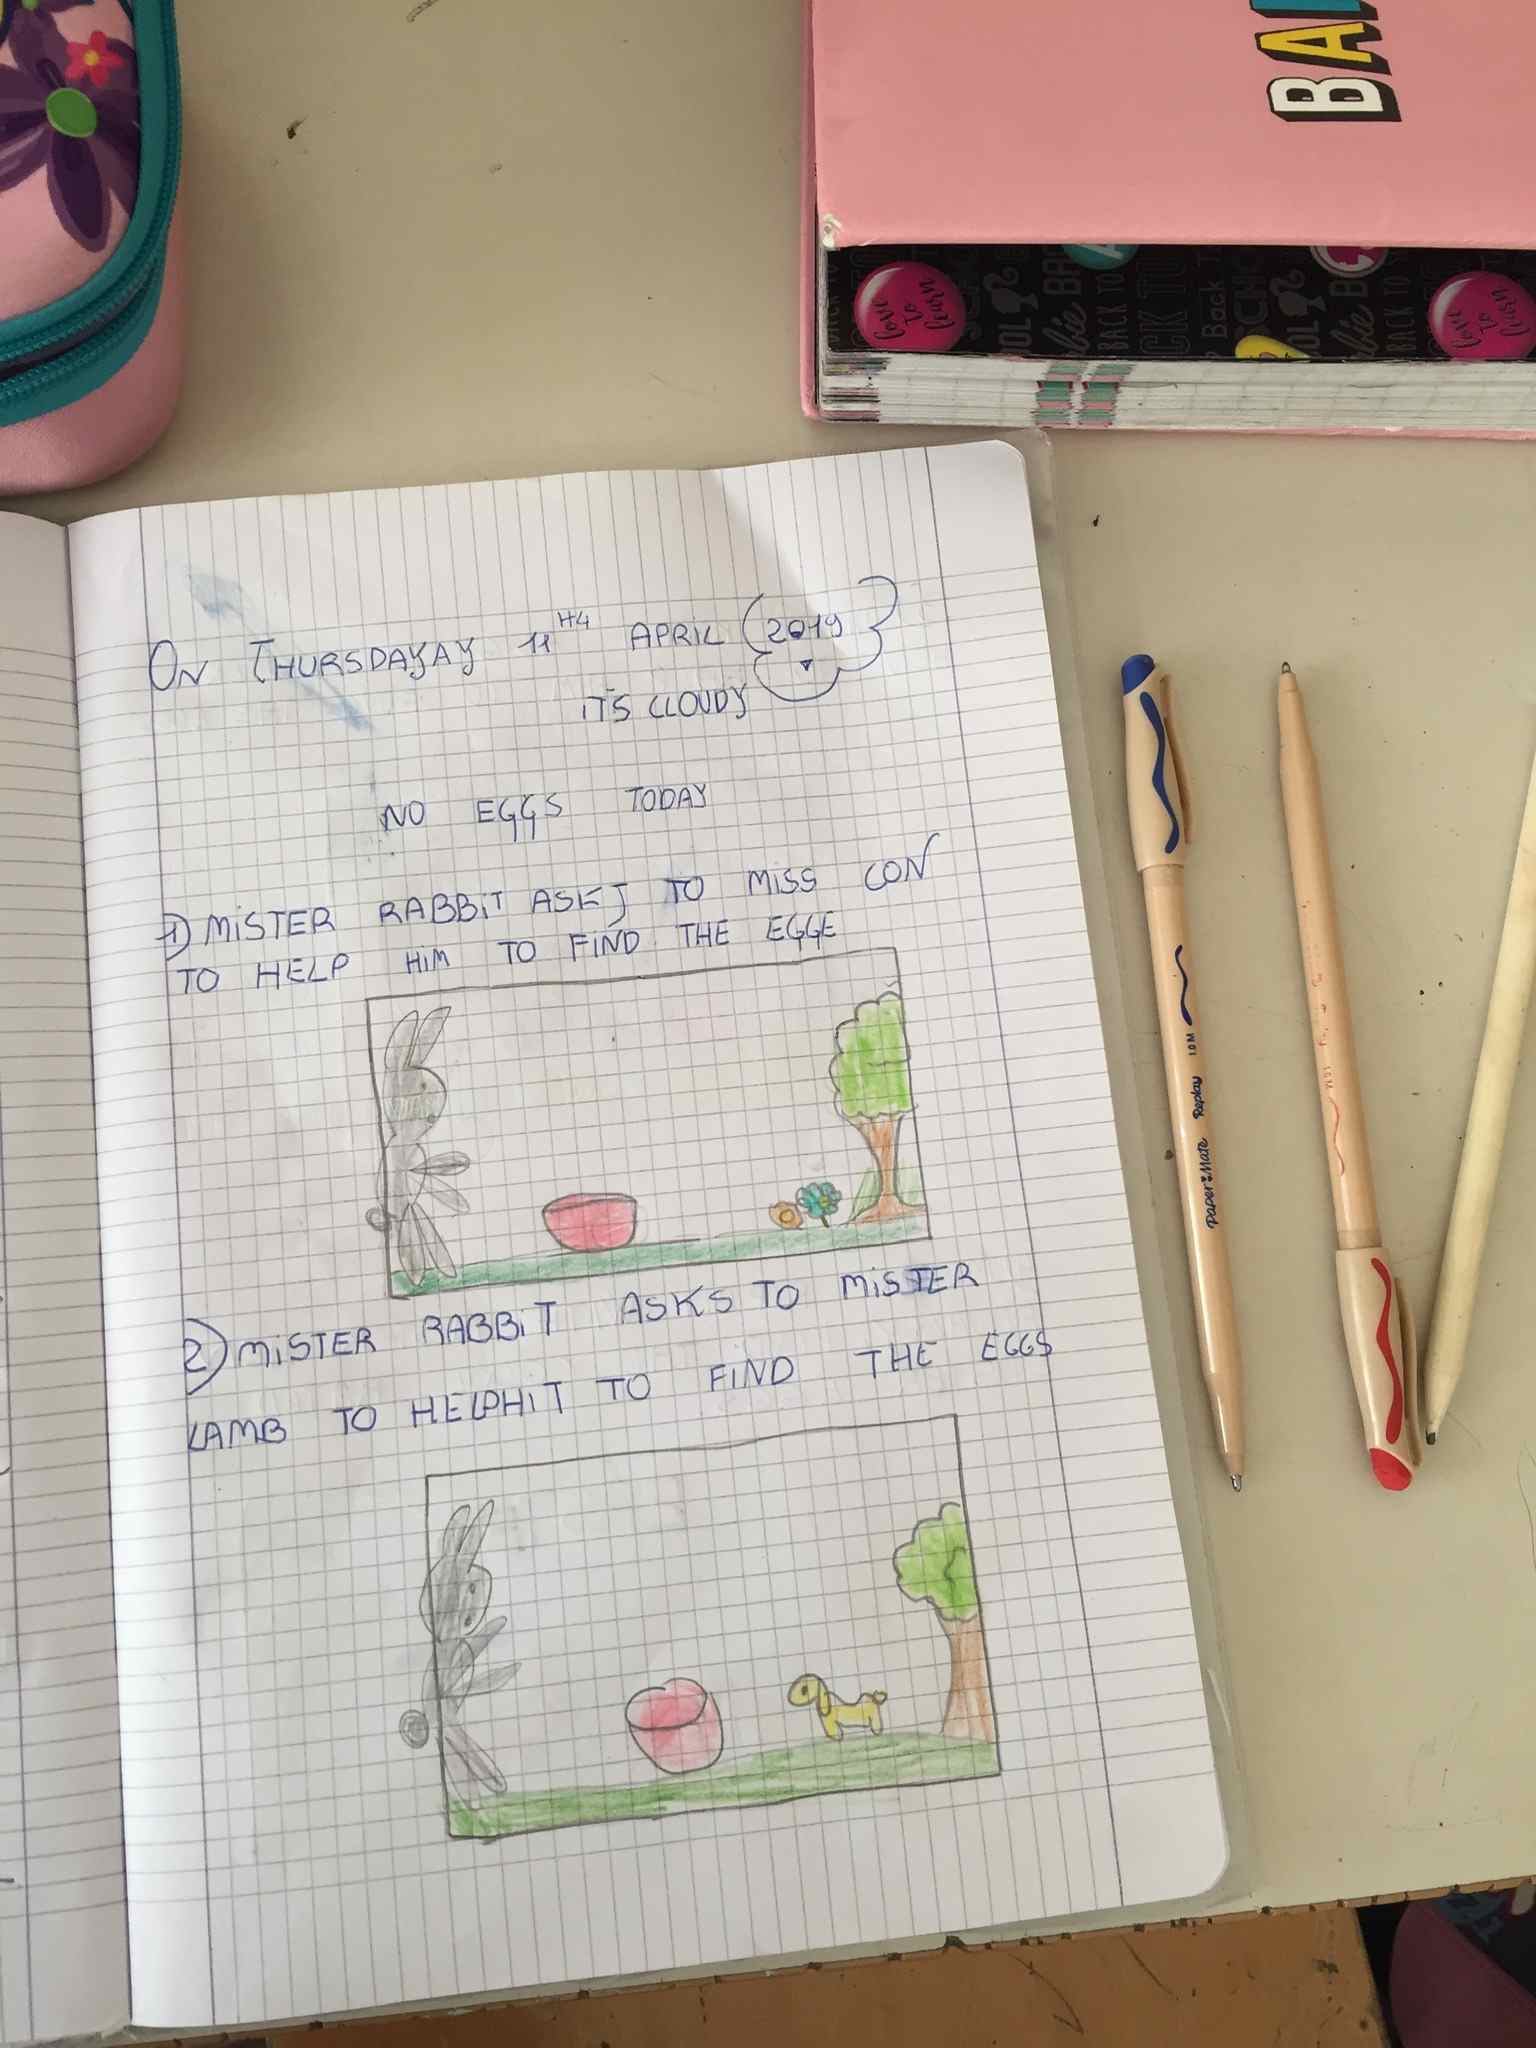 BA
Love to Learn
Back To
Love to Learn
ON THURSDAYAY 11TH4 APRIL 2019
IT'S CLOUDY
NO EGGS TODAY
1) MiSTER RABBiT ASKS TO MiSS CON
TO HELP HiM TO FiND THE EGGE
2) MiSTER RABBiT ASKS TO MiSTER
LAMB TO HELPHiT TO FiND THE EGGS
Paper Mate Replay 1.0 M